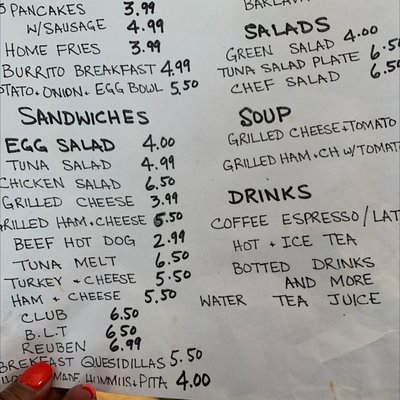 5 PANCAKES 3.99
W/SAUSAGE 4.99
HOME FRIES 3.99
BURRITO BREAKFAST 4.99
POTATO + ONION + EGG BOWL 5.50
SANDWICHES
EGG SALAD 4.00
TUNA SALAD 4.99
CHICKEN SALAD 6.50
GRILLED CHEESE 3.99
GRILLED HAM + CHEESE 5.50
BEEF HOT DOG 2.99
TUNA MELT 6.50
TURKEY + CHEESE 5.50
HAM + CHEESE 5.50
CLUB 6.50
B.L.T 6.50
REUBEN 6.99
BREKFAST QUESIDILLAS 5.50
MADE HUMMUS + PITA 4.00
BAKLAVA
SALADS
GREEN SALAD 4.00
TUNA SALAD PLATE 6.50
CHEF SALAD 6.50
SOUP
GRILLED CHEESE + TOMATO
GRILLED HAM + CH W/ TOMATO
DRINKS
COFFEE ESPRESSO / LAT
HOT + ICE TEA
BOTTED DRINKS
AND MORE
WATER TEA JUICE